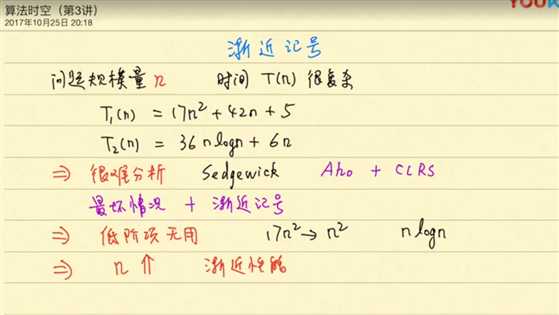 算法时空(第3讲)
2017年10月25日 20:18
YOUK
渐近记号
问题规模量 n 时间 T(n) 很复杂
T₁(n) = 17n² + 42n + 5
T₂(n) = 36 n logn + 6n
⇒ 很难分析 Sedgewick Aho + CLRS
最坏情况 + 渐近记号
⇒ 低阶项无用 17n² → n² n logn
⇒ n ↑ 渐近性能